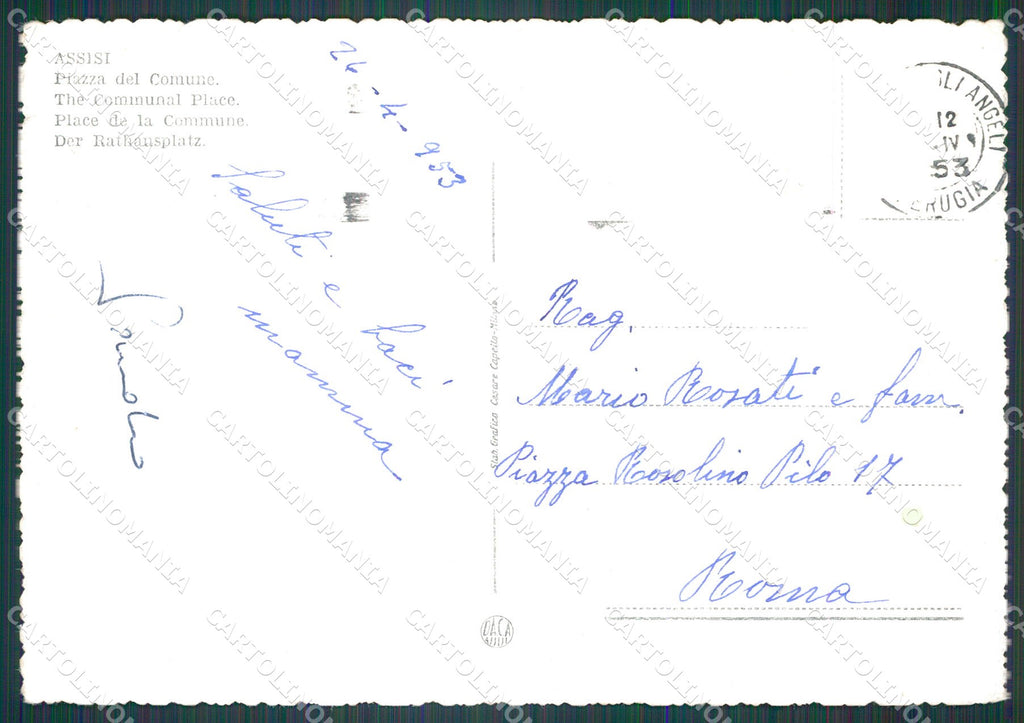 ASSISI
Piazza del Comune.
The Communal Place.
Place de la Commune.
Der Rathausplatz.
26-4-953
Saluti e baci
mamma
GLI ANGELI
12
IV
53
PERUGIA
Rag.
Mario Rosati e fam.
Piazza Rosolino Pilo 17
Roma
Stab. Grafico Cesare Capello - Milano
DACA
CARTOLINOMANIA